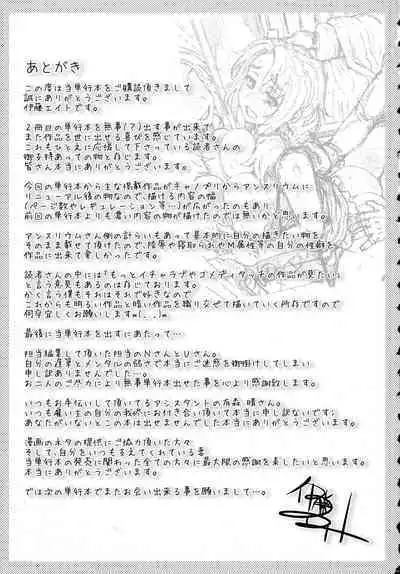 あとがき
この度は当単行本をご購読頂きまして
誠にありがとうございます。
伊藤エイトです。
2冊目の単行本を無事(?)出す事が出来て
また作品を世に出せる喜びを感じています。
これもひとえに応援して下さっている読者さんの
御子持あっての物と存じます。
皆さん本当にありがとうございます。
今回の単行本から主な掲載作品がキャノプリからアンスリウムに
リニューアル後の物なので、描ける内容の幅
(ページ数やレギュレーション等…)が広がったのもあり
前回の単行本よりも濃い内容の物が描けたのでは無いかと思います。
アンスリウムさん側の計らいもあって基本的に自分の描きたい物を
そのまま載せて頂けたので、陵辱や寝取られやM属性等の自分の性癖を
作品に出来て楽しかったです。
読者さんの中には「もっとイチャラブやコメディタッチの作品が見たい」
と言う意見もあるのは存じております。
かく言う僕もそれはそれで好きなので
これからも明るい作品と暗い作品を織り交ぜて描いていく所存ですので
何卒宜しくお願いしますm(_ _)m
最後に当単行本を出すにあたって…
担当編集して頂いた担当のNさんとUさん。
自分の遅筆とメンタルの弱さで本当にご迷惑を御掛けしてしまい
申し訳ありませんでした…。
お二人のご尽力により無事単行本出せた事を心より感謝致します。
いつもお手伝いして頂いてるアシスタントの有森 晴さん。
いつも雇い主の自分の我侭にお付き合い頂いて本当に申し訳ないです;
あなたがいないとこの本は出せませんでした本当にありがとうございます。
漫画のネタの提供にご協力頂いた方々
そして、自分をいつも支えてくれている妻
当単行本の発売に関わった全ての方々に最大限の感謝を表したいと思います。
本当にありがとうございます。
では次の単行本でまたお会い出来る事を願いまして…。